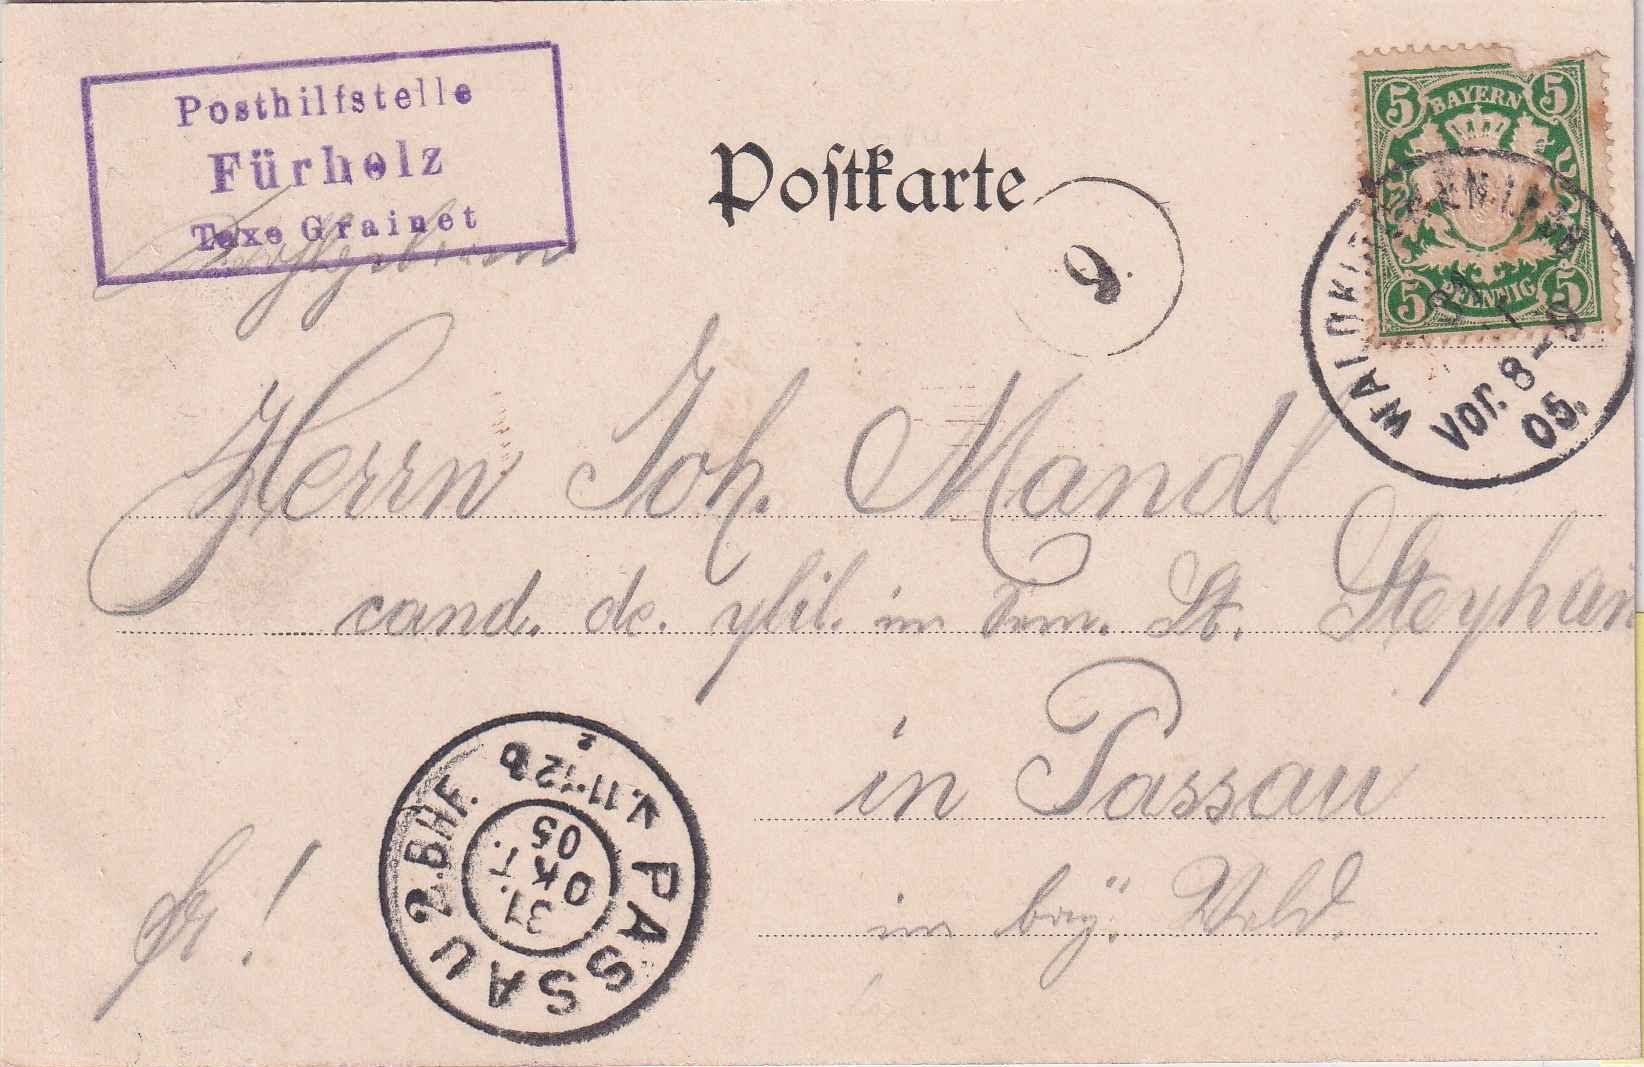 Posthilfstelle
Fürholz
Taxe Grainet
Postkarte
5 BAYERN 5
5 PFENNIG 5
Vor. 8-
05.
Herrn Joh. Mandl
cand. de. phil. im Sem. St.
in Passau
im bay. Wld.
fr!
PASSAU 2. BHF.
V. 11-12
31.
OKT.
05